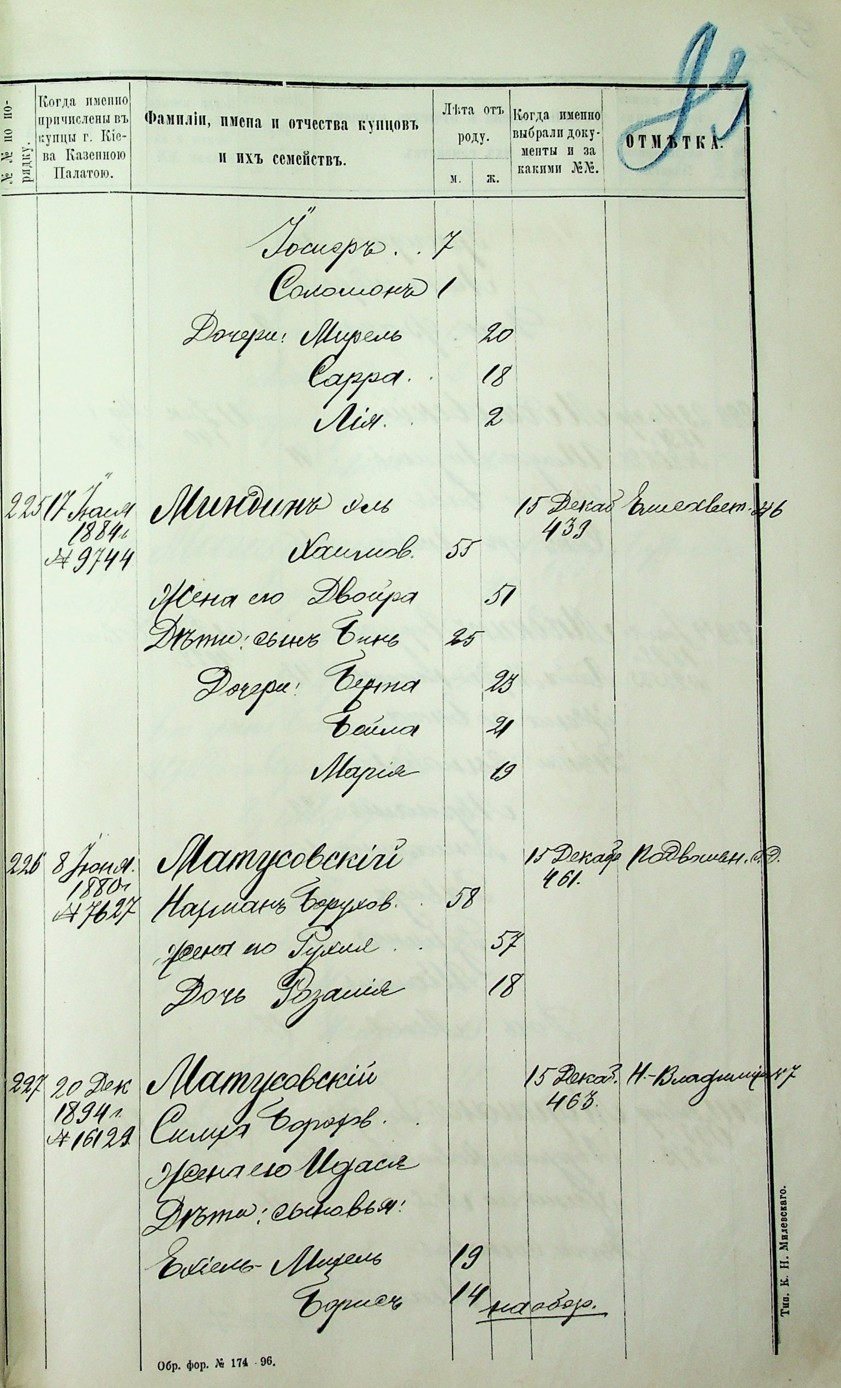 №№ по порядку.
Когда именно причислены въ купцы г. Кіева Казенною Палатою.
Фамиліи, имена и отчества купцовъ и ихъ семействъ.
Лѣта отъ роду.
м.
ж.
Когда именно выбрали документы и за какими №№.
ОТМѢТКА.
Іосифъ . . 7
Соломонъ 1
Дочери: Мирель 20
Сарра. 18
Лія. 2
225 17 Іюля Миндинъ 15 Декаб Елисавет. 46
1884 г 439
№ 9744 Хаимов. 55
Жена его Двойра 51
Дѣти: сынъ Бинь 25
Дочери: Берта 23
Бейла 21
Марія 19
226 8 Іюня. Матусовскій 15 Декабр
1880 г 461.
№ 7627 Нарманъ Борухов. 58
Жена его Рухля 57
Дочь Розалія 18
227 20 Дек Матусовскій 15 Декаб. Н.-Владимір 47
1894 г 463.
№ 16129
Жена его
Дѣти: сыновья:
Ехіель- 19
Борисъ 14 на обор.
Обр. фор. № 174 - 96.
Тип. К. Н. Милевскаго.